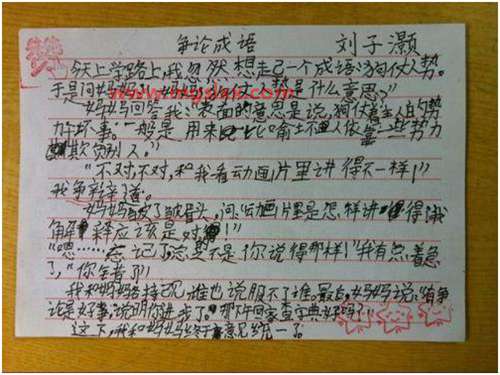 争论成语 刘子灏
今天上学路上,我忽然想走己一个成语:狗仗人势。
于是问妈妈 势是什么意思?"
妈妈回答我:"表面的意思是说,狗仗着主人的势
力干坏事。一般是用来比 人依靠一些势力
欺负别人。"
"不对,不对,和我看动画片里讲得不一样!"
我争辩道。
妈妈皱了皱眉头,问:"动画片里是怎样讲得 我
解释应该是对 !"
"嗯……忘记了,总是不是你说得那样!"我有点着急
了,"你 !"
我和妈妈 谁也说服不了谁。最后,妈妈说:"有争
论是好事,说明你进步了。 下午回家查字典好吗?"
这下,我和妈妈终于意见统一了。